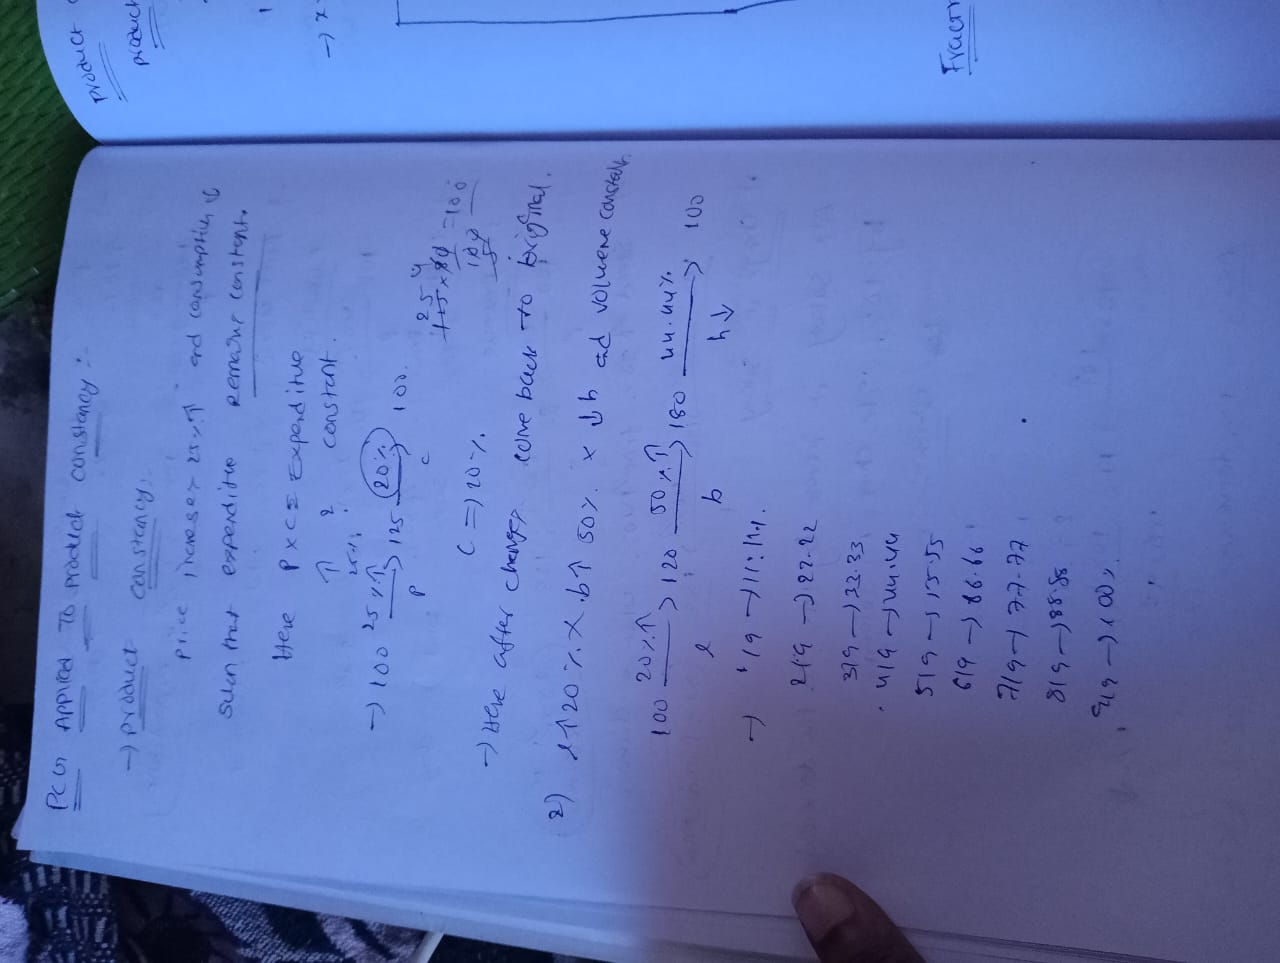 PCG APPlied TO product constancy :-
→ product constancy.
price increases 25%↑ and consumption ↓
such that expenditure remains constant.
Here P x C = Expenditure
↑ ? constant.
25%
→ 100 25%↑ 125 20% 100.
P C
25 4
125 x 80 = 100
100
5
C => 20%.
→ Here after changes come back to original.
2) l↑20% x b↑ 50% x ↓h ad volume constant.
100 20%↑ 120 50%↑ 180 44.44% 100
l b h↓
→ 1/9 → 11.11%.
2/9 → 22.22
3/9 → 33.33
4/9 → 44.44
5/9 → 55.55
6/9 → 66.66
7/9 → 77.77
8/9 → 88.88
9/9 → 100%.
product
product
→ x
Fraction